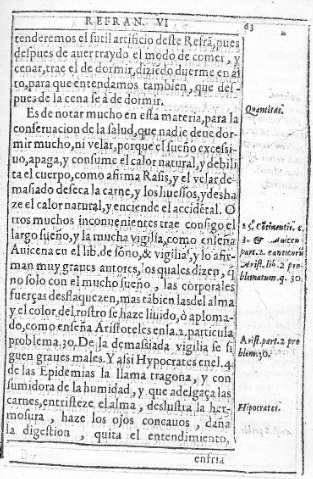 REFRAN. VI
63
tenderemos el sutil artificio deste Refrã, pues
despues de auer traydo el modo de comer, y
cenar, trae el de dormir, diziẽdo duerme en al
to, para que entendamos tambien, que des-
pues de la cena se à de dormir.
Es de notar mucho en esta materia, para la
Quantitas.
conseruacion de la salud, que nadie deue dor-
mir mucho, ni velar, porque el sueño excessi-
uo, apaga, y consume el calor natural, y debili
ta el cuerpo, como afirma Rasis, y el velar de-
masiado deseca la carne, y los huessos, y desha
ze el calor natural, y enciende el accidẽtal. O
tros muchos inconuenientes trae consigo el
largo sueño, y la mucha vigilia, como enseña
Auicena en el lib. de sõno, & vigilia, y lo afir-
man muy graues autores, los quales dizen, q̃
no solo con el mucho sueño, las corporales
fuerças desflaquezen, mas tãbien las del alma
y el color del rostro se haze liuido, ò aploma-
do, como enseña Aristoteles en la 2. particula
problema. 30. De la demassiada vigilia se si
guen graues males. Y assi Hypocrates en el. 4.
de las Epidemias la llama tragona, y con
sumidora de la humidad, y que adelgaça las
carnes, entristeze el alma, deslustra la her-
mosura, haze los ojos concauos, daña
la digestion, quita el entendimiento,
enfria
3. & Auicen
part. 2. canticorũ
Arist. lib. 2 pro
blematum. q. 30.
Arist. part. 2 pro
blem. 30.
Hipocrates.